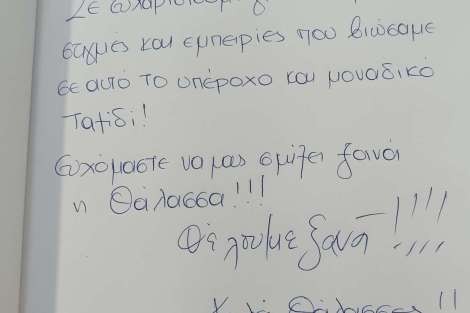 Σε ευχαριστούμε
στιγμές και εμπειρίες που βιώσαμε
σε αυτό το υπέροχο και μοναδικό
ταξίδι!
Ευχόμαστε να μας σμίξει ξανά
η θάλασσα!!!
Θέλουμε ξανά!!!!!
θάλασσες!!